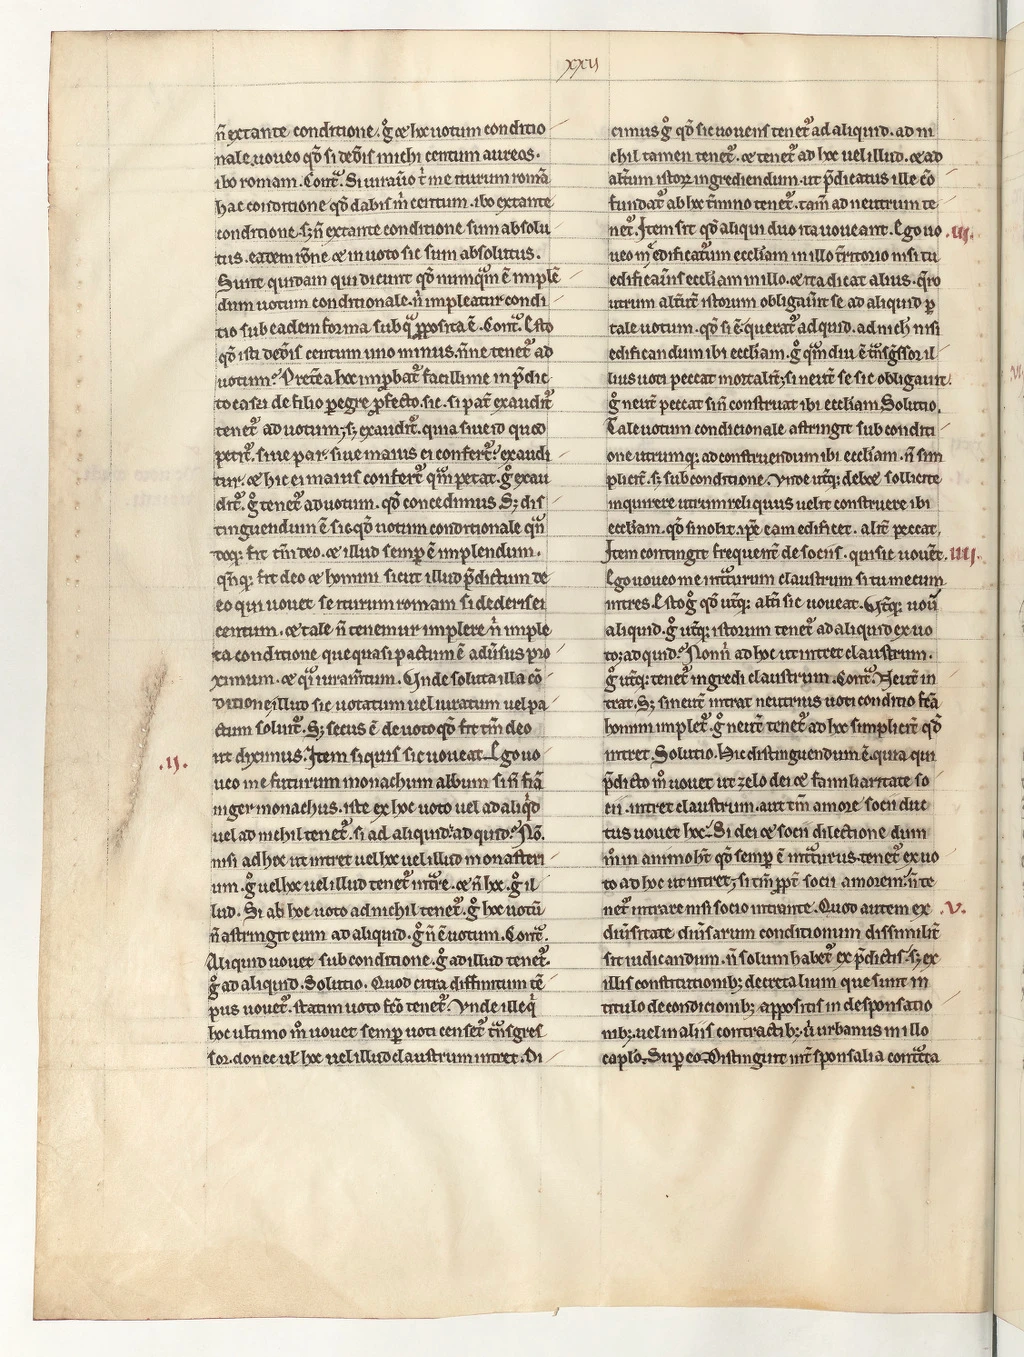 xxii
n̄ extante conditione. g̊ ⁊ hoc uotum conditio
nale. uoueo qd̄ si deđis michi centum aureos.
ibo romam. Cont᷑. Si iurau̾o t̾ me iturum romā
hac conditione qd̄ dabis m̄ centum. ibo extante
conditione. sꝫ n̄ extante conditione sum absolu
tus. eadem rōne ⁊ in uoto sic sum absolutus.
Sunt quidam qui dicunt qd̄ numqᷓm ē implē
dum uotum conditionale. n̄ impleatur condi
tio sub eadem forma sub qᷓ ꝓposita ē. Cont᷑. Esto
qd̄ isti deđis centum uno minus. n̄ne tenet᷑ ad
uotum? Pret̾ea hoc improbat᷑ facillime in p̄dic
to casu de filio peregre ꝓfecto. sic. si pat̾ exaudit᷑
tenet᷑ ad uotum; sꝫ exaudit᷑. quia siue id quod
petit᷑. siue par. siue maius ei confert᷑. exaudi
tur. ⁊ hic ei maius confert᷑ qᷓm petat. g̊ exau
dit᷑. g̊ tenet᷑ ad uotum. qd̄ concedimus. Sꝫ dis
tinguendum ē sic. qd̄ uotum conditionale qn̄
doqꝫ fit tm̄ deo. ⁊ illud semp̱ ē implendum.
qn̄qꝫ fit deo ⁊ homini sicut illud p̄dictum de
eo qui uouet se iturum romam si dederis ei
centum. ⁊ tale n̄ tenemur implere n̄ imple
ta conditione que quasi pactum ē adu̾sus pro
ximum. ⁊ qͥ iuram̄tum. Vnde soluta illa cō
ditione illud sic uotatum uel iuratum uel pa
ctum soluit᷑. Sꝫ secus ē de uoto qd̄ fit tm̄ deo
ut diximus. Item si quis sic uoueat. Ego uo
.ii. ueo me futurum monachum album si n̄ fiā
niger monachus. iste ex hoc uoto uel ad aliqͥd
uel ad nichil tenet᷑. si ad aliquid: ad quid? Nō.
nisi ad hoc ut intret uel hoc uel illud monasteri
um. g̊ uel hoc uel illud tenet᷑ int̾re. ⁊ n̄ hoc. g̊ il
lud. Si ab hoc uoto ad nichil tenet᷑. g̊ hoc uotū
n̄ astringit eum ad aliquid. g̊ n̄ ē uotum. Cont᷑.
Aliquid uouet sub conditione. g̊ ad illud tenet᷑.
g̊ ad aliquid. Solutio. Quod citra diffinitum tē
pus uouet᷑. statim uoto fc̄o tenet᷑. Vnde ille qͥ
hoc ultimo m̊ uouet semp̱ uoti censet᷑ tn̄sgres
sor. donec ul̓ hoc uel illud claustrum intret. Di
cimus g̊ qd̄ sic uouens tenet᷑ ad aliquid. ad ni
chil tamen tenet᷑. ⁊ tenet᷑ ad hoc uel illud. ⁊ ad
alt̾um istoꝝ ingrediendum. ut p̄dicatus ille cō
fundat᷑ ab hoc t̾mino tenet᷑. tam̄ ad neutrum te
net᷑. Item sit qd̄ aliqui duo ita uoueant. Ego uo .iii.
ueo m̊ edificatum eccl̄iam in illo t̾ritorio nisi tu
edificau̾is eccl̄iam in illo. ⁊ ita dicat alius. q̄ro
utrum alt̾ut̾ istorum obligau̾it se ad aliquid ꝑ
tale uotum. qd̄ si ē: querat᷑ ad quid. ad nich̄ nisi
edificandum ibi eccl̄iam. g̊ qᷓm diu ē tn̄sḡssor il
lius uoti peccat mortalit̾; si neut̾ se sic obligauit.
g̊ neut̾ peccat si n̄ construat ibi eccl̄iam Solutio.
Tale uotum condicionale astringit sub conditi
one utrumqꝫ ad construendum ibi eccl̄iam. n̄ sim
plicit̾. sꝫ sub conditione. Vnde ut̾qꝫ debet sollicite
inquirere utrum reliquus uelit construere ibi
eccl̄iam. qd̄ si nolit. ip̄e eam edificet. alit̾ peccat.
Item contingit frequent̾ de sociis. qui sic uouēt. .iiii.
Ego uoueo me int̾turum claustrum si tu mecum
intres. Esto g̊ qd̄ ut̾qꝫ alt̾i sic uoueat. Vt̾qꝫ uouȝ
aliquid. g̊ ut̾qꝫ istorum tenet᷑ ad aliquid ex uo
to: ad quid? Non n̄ ad hoc ut intret claustrum.
g̊ ut̾qꝫ tenet᷑ ingredi claustrum. Cont᷑. Neut̾ in
trat. Sꝫ si neut̾ intrat neutrius uoti conditio fc̄a
homini implet᷑. g̊ neut̾ tenet᷑ ad hoc simplicit̾ qd̄
intret. Solutio. Hic distinguendum ē. quia qui
p̄dicto m̊ uouet ut zelo dei ⁊ familiaritate so
cii. intret claustrum. aut tm̄ amore socii duc
tus uouet hoc. Si dei ⁊ socii dilectione dum
m̊ in animo hēt qd̄ semp̱ ē int̾turus. tenet᷑ ex uo
to ad hoc ut intret; si tm̄ ꝓpt̾ socii amorem. n̄ te
net᷑ intrare nisi socio intrante. Quod autem ex .v.
diu̾sitate diu̾sarum conditionum dissimilit̾
sit iudicandum. n̄ solum habet᷑ ex p̄dictis. sꝫ ex
illis constitutionibꝫ decretalium que sunt in
titulo de condicionibꝫ appositis in desponsatio
nibꝫ. uel in aliis contractibꝫ. n̄ urbanus in illo
cap̄lo. Super eo. Distinguit int̾ sponsalia cont̾cta